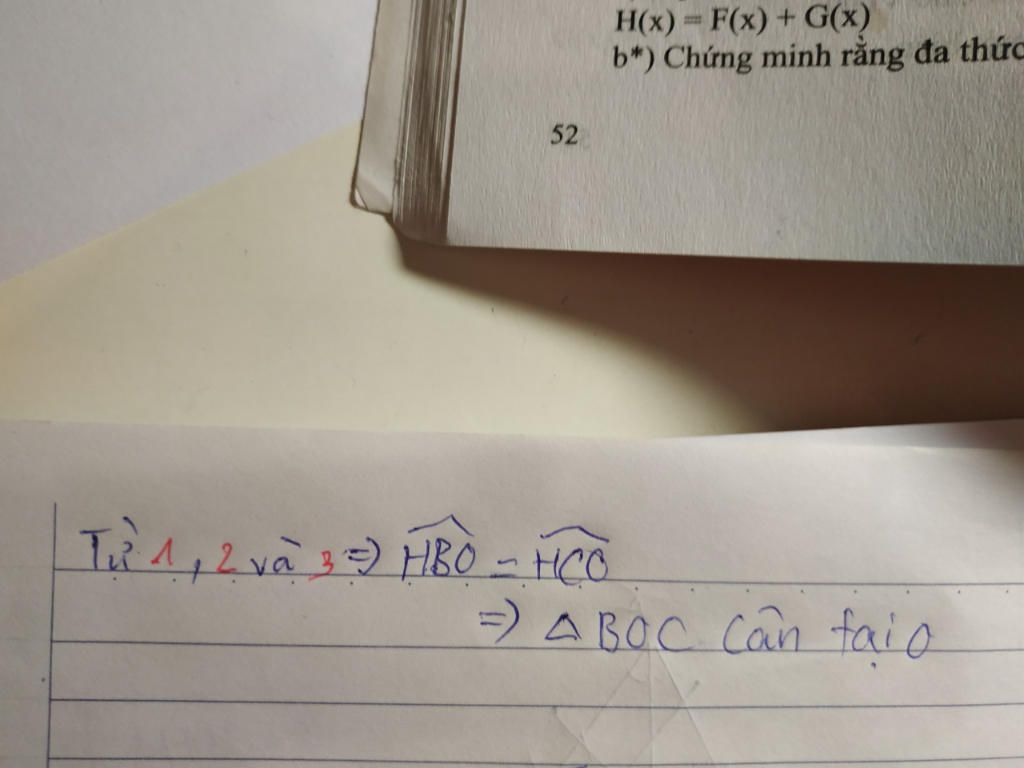 H(x) = F(x) + G(x)
b*) Chứng minh rằng đa thức
52
Từ 1, 2 và 3 => \widehat{HBO} = \widehat{HCO}
=> △BOC cân tại O